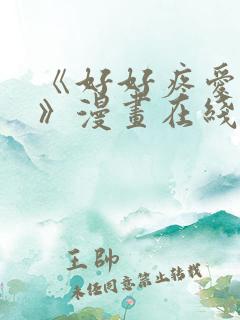 《好好疼爱
》漫畫在綫
王帥
未经同意禁止转载